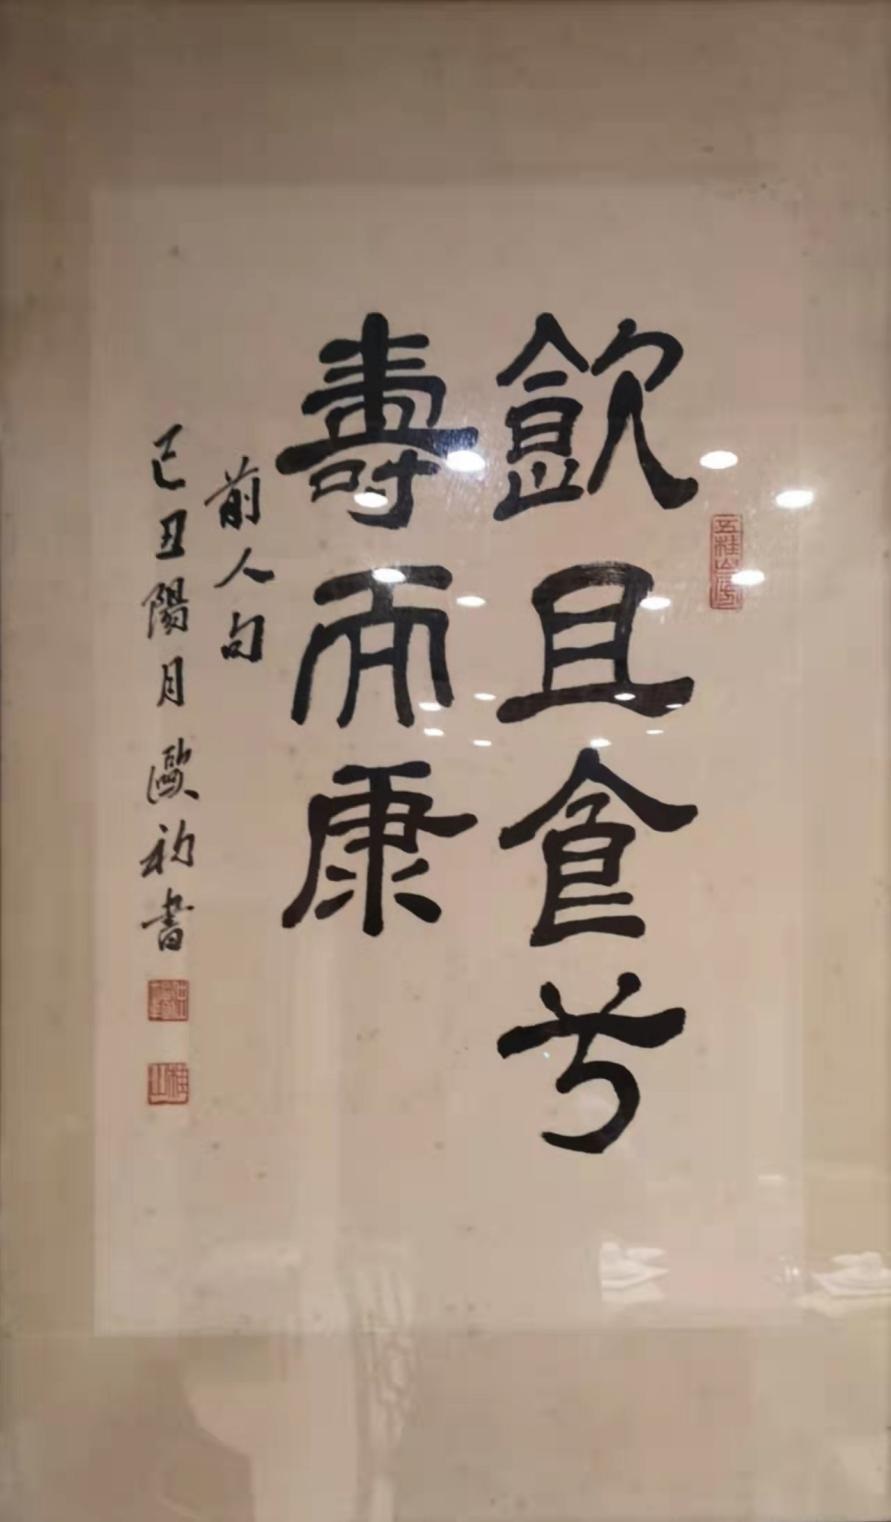 飲且食兮
壽而康
前人句
己丑陽月歐初書